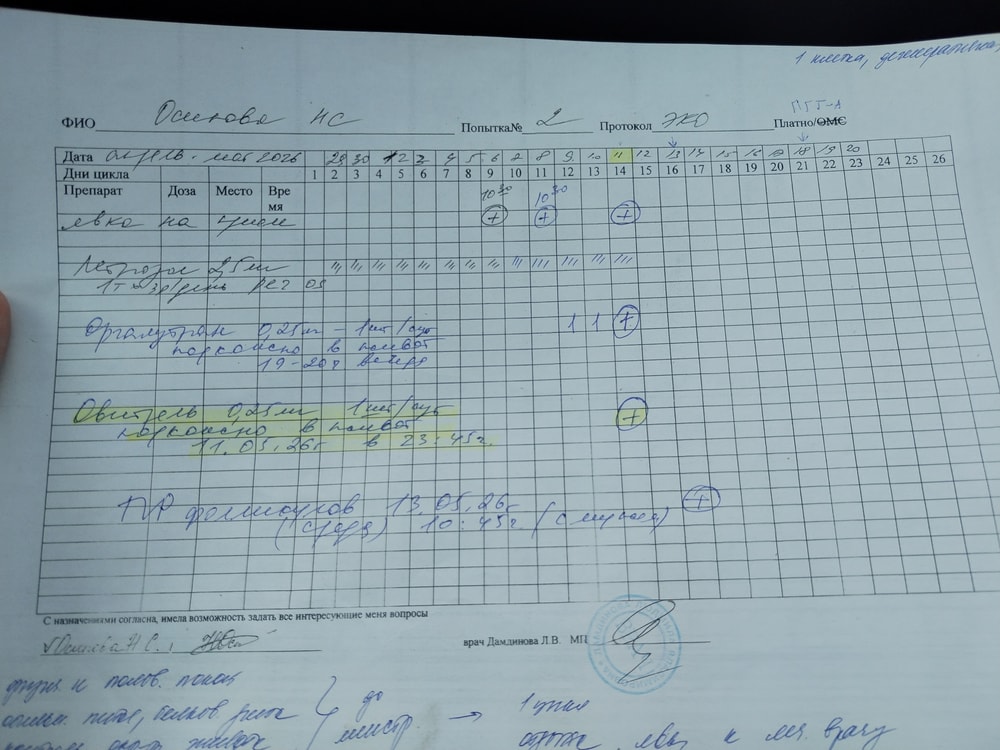 1 клетка, дегенеративная,
ПГТ-А
ФИО Осипова НС Попытка№ 2 Протокол ЭКО Платно/ОМС
Дата апрель - май 2026 29 30 1 2 3 4 5 6 7 8 9 10 11 12 13 14 15 16 17 18 19 20
Дни цикла 1 2 3 4 5 6 7 8 9 10 11 12 13 14 15 16 17 18 19 20 21 22 23 24 25 26
Препарат Доза Место Время
10 30 10 30
явка на прием + + +
Летрозол 2,5 мг
1т 2 р/день
Оргалутран 0,25 мг - 1 шт/сут 1 1 +
подкожно в живот
19-20ч вечера
Овитрель 0,25 мг 1 шт/сут +
подкожно в живот
11.05.26г в 23:45ч.
ПР фолликулов 13.05.26г +
(среда) 10:45ч (с мужем)
С назначениями согласна, имела возможность задать все интересующие меня вопросы
Осипова Н.С. врач Дамдинова Л.В. МП
физ. и полов. покой
до
1 укол
явка к леч. врачу